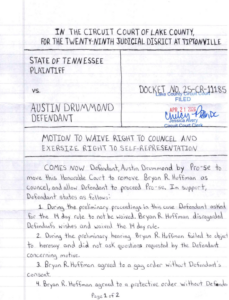 IN THE CIRCUIT COURT OF LAKE COUNTY,
FOR THE TWENTY-NINTH JUDICIAL DISTRICT AT TIPTONVILLE
STATE OF TENNESSEE
PLAINTIFF
VS.
DOCKET NO. 25-CR-11185
FILED
AUSTIN DRUMMOND
DEFENDANT
Circuit Court Clerk
MOTION TO WAIVE RIGHT TO COUNCEL AND
EXERSIZE RIGHT TO SELF-REPRESENTATION
COMES NOW Defendant, Austin Drummond by Pro-se to
move this Honorable Court to remove Bryan R. Hoffman as
counsel, and allow Defendant to proceed Pro-se. In support,
Defendant states as follows:
1. During the preliminary proceedings in this case Defendant
for the 14 day rule to not be waived. Bryan R. Hoffman disregarded
Defendant's wishes and waived the 14 day rule.
2. During the preliminary hearing Bryan R. Hoffman failed to object
to hearsay and did not ask questions requested by the Defendant
concerning motive.
3. Bryan R. Hoffman agreed to a gag order without Defendant's
consent.
4. Bryan R. Hoffman agreed to a protective order without
Page 1 of 2